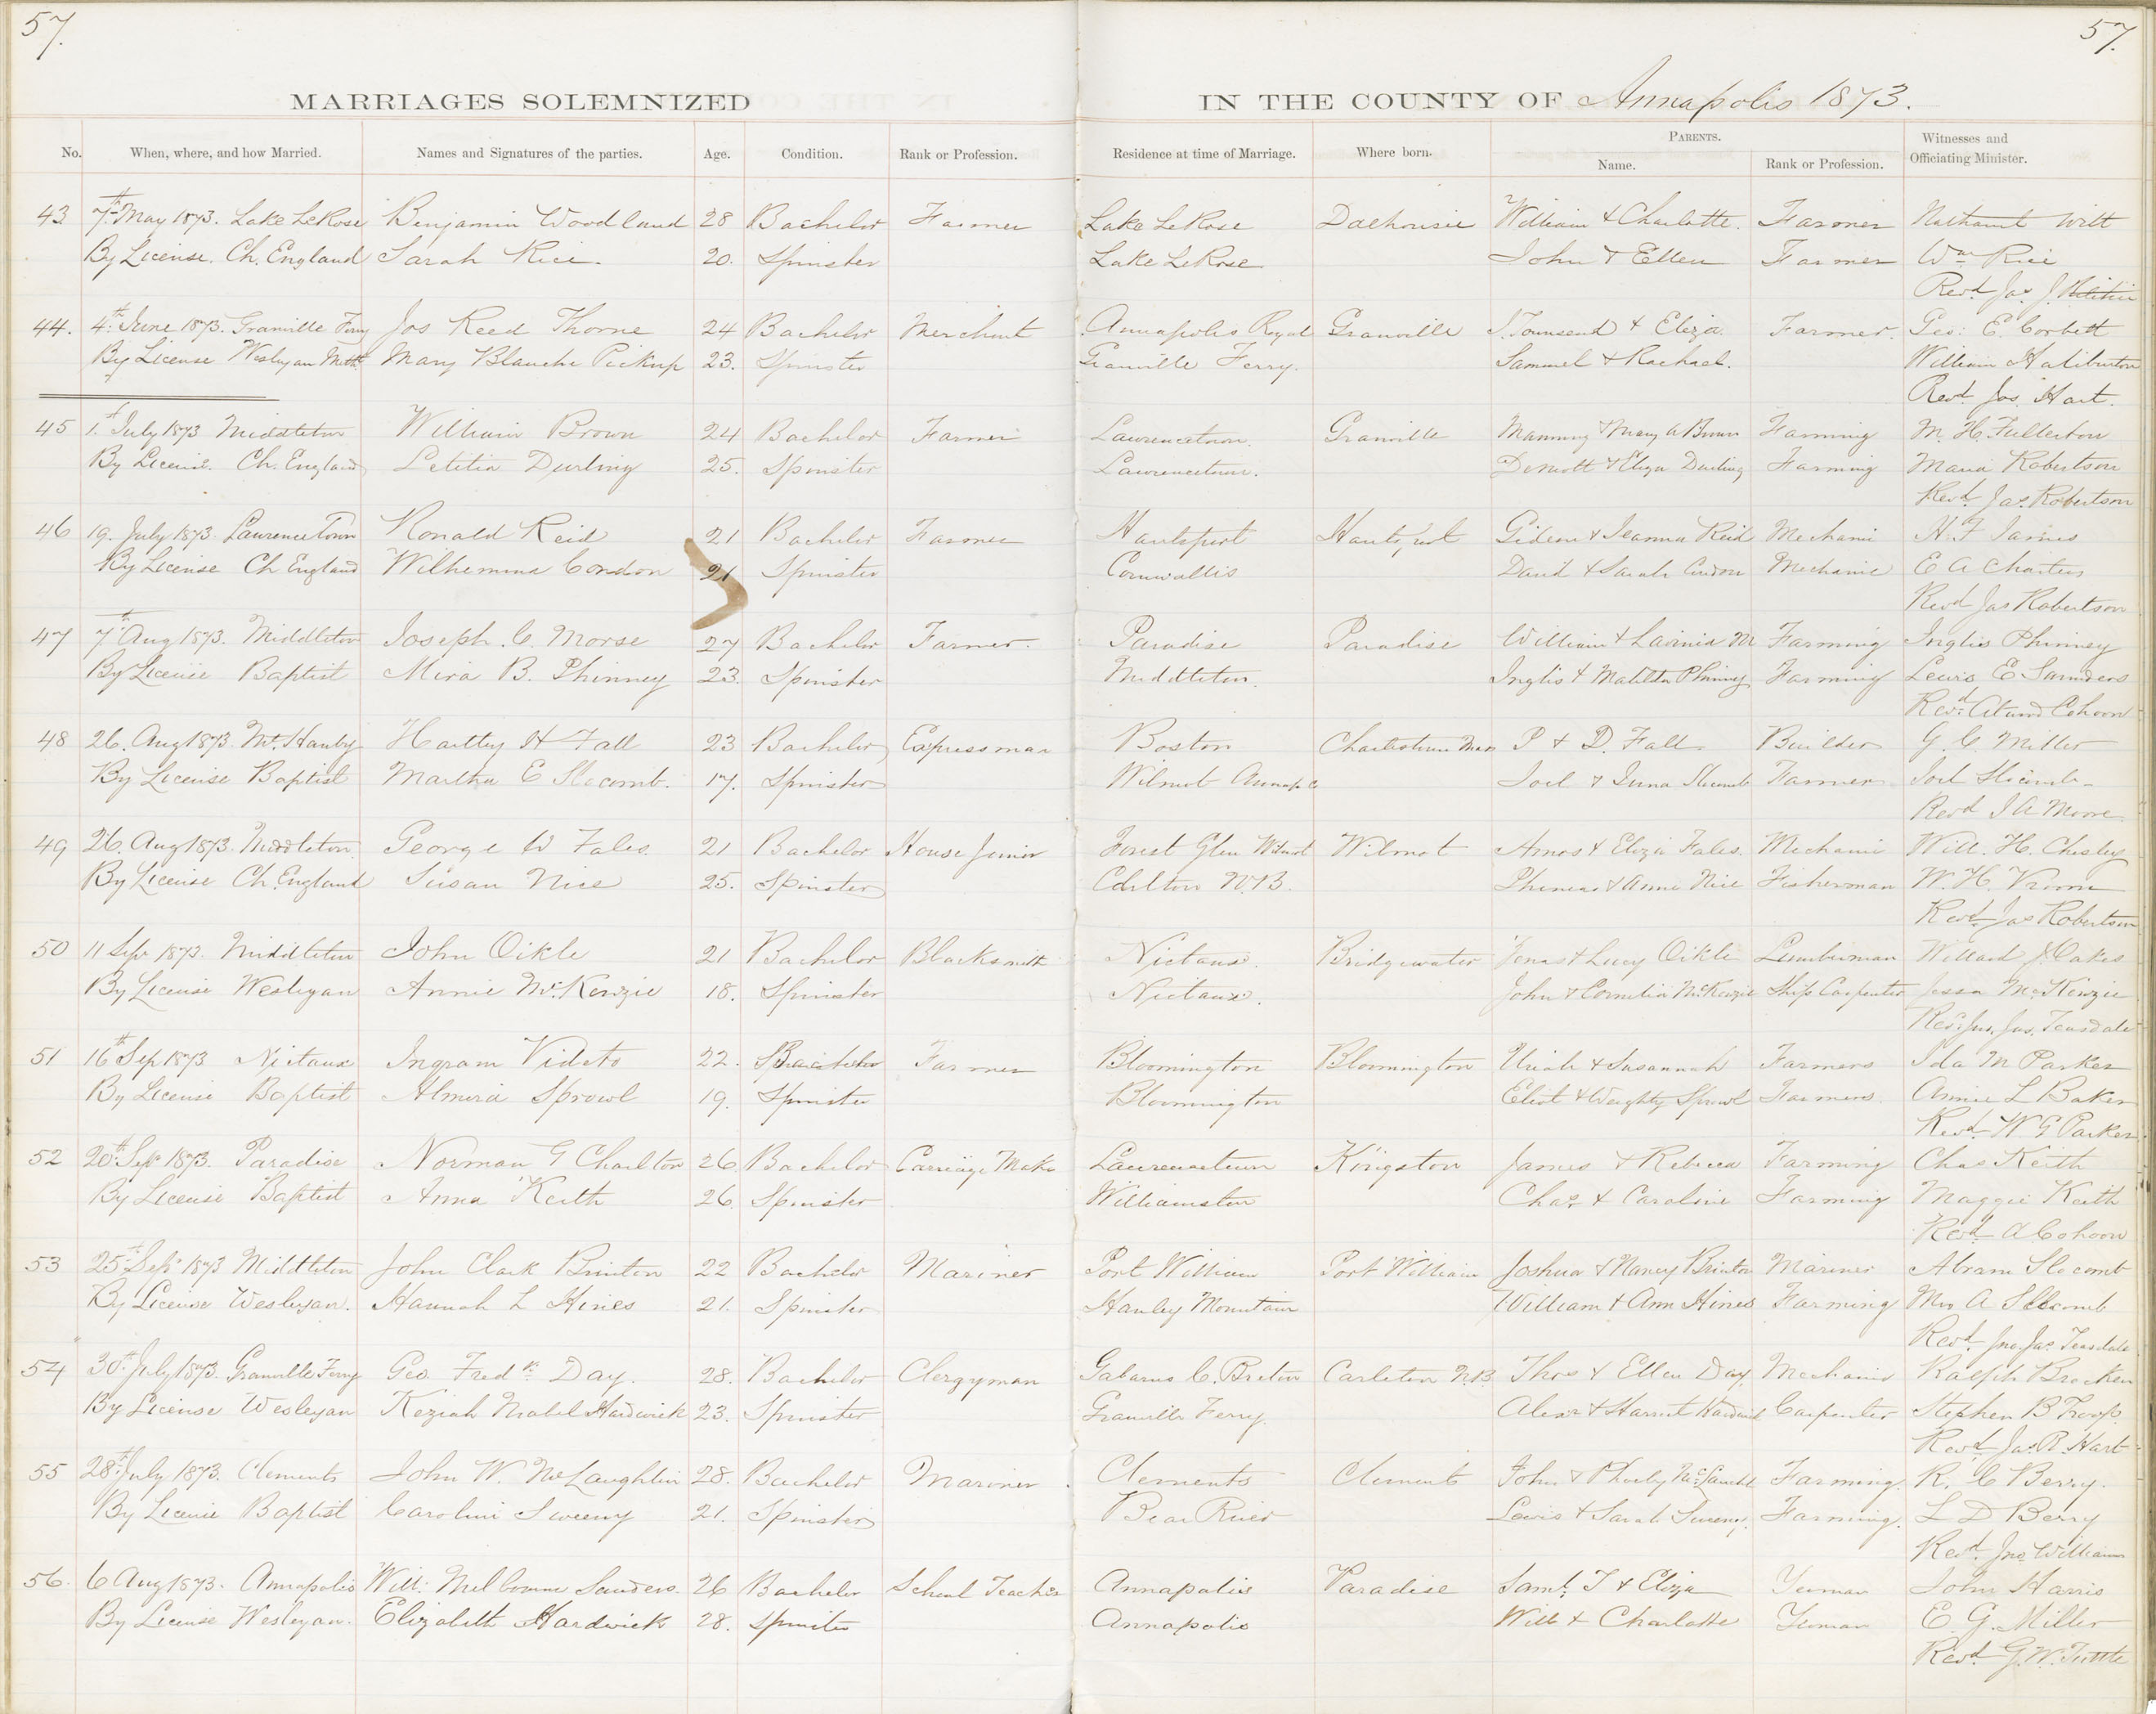 57. 57.
MARRIAGES SOLEMNIZED IN THE COUNTY OF Annapolis 1873.
No. When, where, and how Married. Names and Signatures of the parties. Age. Condition. Rank or Profession. Residence at time of Marriage. Where born. PARENTS. Name. Rank or Profession. Witnesses and Officiating Minister.
43 7th May 1873. Lake LeRose Benjamin Woodland 28 Bachelor Farmer Lake LeRose Dalhousie William & Charlotte. Farmer Wilt
By License. Ch. England Sarah Rice. 20. Spinster Lake LeRose John & Ellen Farmer Wm Rice
Revd. Jas. J. Ritchie
44. 4th June 1873. Granville Ferry Jos Reed Thorne 24 Bachelor Merchant Annapolis Royal Granville S. Townsend & Eliza Farmer. Geo: E. Corbett
By License Wesleyan Meth. Mary Blanche Pickup 23. Spinster Granville Ferry. Samuel & Rachael. William Haliburton
Revd. Jas. Hart.
45 1st July 1873 Middleton William Brown 24 Bachelor Farmer Lawrencetown. Granville Manning & Mary A Brown Farming M. H. Fullerton
By License. Ch. England Letitia Durling 25. Spinster Lawrencetown. & Eliza Durling Farming Maria Robertson
Revd. Jas. Robertson
46 19. July 1873. LawrenceTown Ronald Reid 21 Bachelor Farmer Hantsport Hantsport Gideon & Reid Mechanic H. F.
By License Ch England Wilhemina Condon 21 Spinster Cornwallis David & Sarah Condon Mechanic E A Charters
Revd Jas Robertson
47 7th Aug 1873. Middleton Joseph. C. Morse 27 Bachelor Farmer. Paradise Paradise William & Lavinia M Farming Inglis Phinney
By License Baptist Mira B. Phinney 23. Spinster Middleton. Inglis & Matilda Phinney Farming Lewis E Saunders
Revd. Cohoon
48 26. Aug 1873. Mt. Hanley Hartley H Fall 23 Bachelor Expressman Boston Charlestown Mass P & D. Fall Builder G. C. Miller
By License Baptist Martha E Slocomb. 17. Spinster Wilmot Annap. Co Joel & Slocomb Farmer Joel Slocomb
Revd J A Moore
49 26. Aug 1873. Middleton George W Fales. 21 Bachelor House Joiner Forest Glen Wilmot Wilmot Amos & Eliza Fales. Mechanic Will. H. Chesley
By License Ch. England Susan Nice 25. Spinster N.B. Phineas & Annie Nice Fisherman W. H. Vroom
Revd. Jas Robertson
50 11 Sep. 1873. Middleton John Oikle 21 Bachelor Blacksmith Nictaux. Bridgewater Jonas & Lucy Oikle Lumberman Willard J. Oakes
By License Wesleyan Annie McKenzie 18. Spinster Nictaux. John & Cornelia McKenzie Ship Carpenter McKenzie
Revd. Jno. Jas. Teasdale
51 16th Sep 1873 Nictaux Ingram Videto 22. Bachelor Farmer Bloomington Bloomington Uriah & Susannah Farmers Ida M Parker
By License Baptist Almira Sprowl 19. Spinster Bloomington & Weighty Sprowl Farmers. Annie L Baker
Revd. W G Parker
52 20th Sep. 1873. Paradise Norman G Charlton 26 Bachelor Carriage Maker Lawrencetown Kingston James & Rebecca Farming Chas Keith
By License Baptist Anna Keith 26. Spinster Williamston Chas. & Caroline Farming Maggie Keith
Revd. A Cohoon
53 25th Sep. 1873 Middleton John Clark Brinton 22 Bachelor Mariner Port William Port William Joshua & Nancy Brinton Mariner Abram Slocomb
By License Wesleyan. Hannah L Hines 21. Spinster Hanley Mountain William & Ann Hines Farming Mrs A Slocomb
Revd. Jno. Jas. Teasdale
54 30th July 1873. Granville Ferry Geo. Fredk. Day. 28. Bachelor Clergyman Gabarus C. Breton Carleton N.B. Thos & Ellen Day. Mechanic Ralph Brecken
By License Wesleyan Keziah Mabel Hardwick 23. Spinster Granville Ferry. Alexr & Harriet Hardwick Carpenter Stephen B Troop.
Revd. Jas. R. Hart
55 28th July 1873. Clements John W. McLaughlin 28. Bachelor Mariner Clements Clements John & Phoeby McLaughl Farming. R. C Berry.
By License Baptist Caroline Sweeny 21. Spinster Bear River Lewis & Sarah Sweeney. Farming. L D Berry
Revd. Jno Williams
56. 6 Aug 1873. Annapolis Will: Melbourne Sanders. 26 Bachelor School Teacher Annapolis Paradise Saml. T & Eliza Yeoman John Harris
By License Wesleyan. Elizabeth Hardwick 28. Spinster Annapolis Will & Charlotte Yeoman E. G. Miller
Revd. G. W. Tuttle